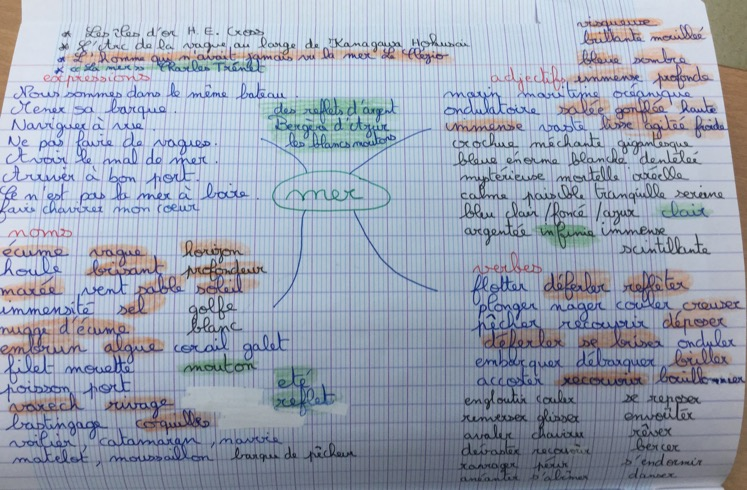 * Les îles d'or H. E. Cross
* L'Arc de la vague, au large de Kanagawa Hokusai
* L'homme que n'avait jamais vu la mer Le Clézio
* La mer Charles Trénet
visqueuse
brillante mouillée
bleue sombre
expressions
Nous sommes dans le même bateau.
Mener sa barque.
Naviguer à vue.
Ne pas faire de vagues.
Avoir le mal de mer.
Arriver à bon port.
Ce n'est pas la mer à boire.
faire chavirer mon coeur
des reflets d'argent
Bergère d'Azur
les blancs moutons
mer
adjectifs immense profonde
marin maritime océanique
ondulatoire salée gonflée haute
immense vaste lisse agitée froide
crochue méchante gigantesque
bleue énorme blanche dentelée
mystérieuse mortelle irréelle
calme paisible tranquille sereine
bleu clair / foncé / azur clair
argentée infinie immense
scintillante
noms
écume vague horizon
houle brisant profondeur
marée vent sable soleil
immensité sel golfe
nuage d'écume blanc
embrun algue corail galet
filet mouette mouton
poisson port
varech rivage
bastingage coquille
voilier catamaran, navire
matelot, moussaillon barque de pêcheur
été
reflet
verbes
flotter déferler refléter
plonger nager couler creuser
pêcher recouvrir déposer
déferler se briser onduler
embarquer débarquer briller
accoster recouvrir bouillonner
engloutir couler se reposer
renverser glisser envoûter
avaler chavirer rêver
dévaster recouvrir bercer
ravager périr s'endormir
anéantir s'abîmer danser